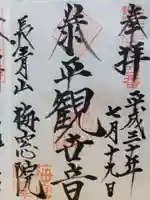 奉拝
平成三十年
七月十九日
泰平観世音
長青山
梅窓院